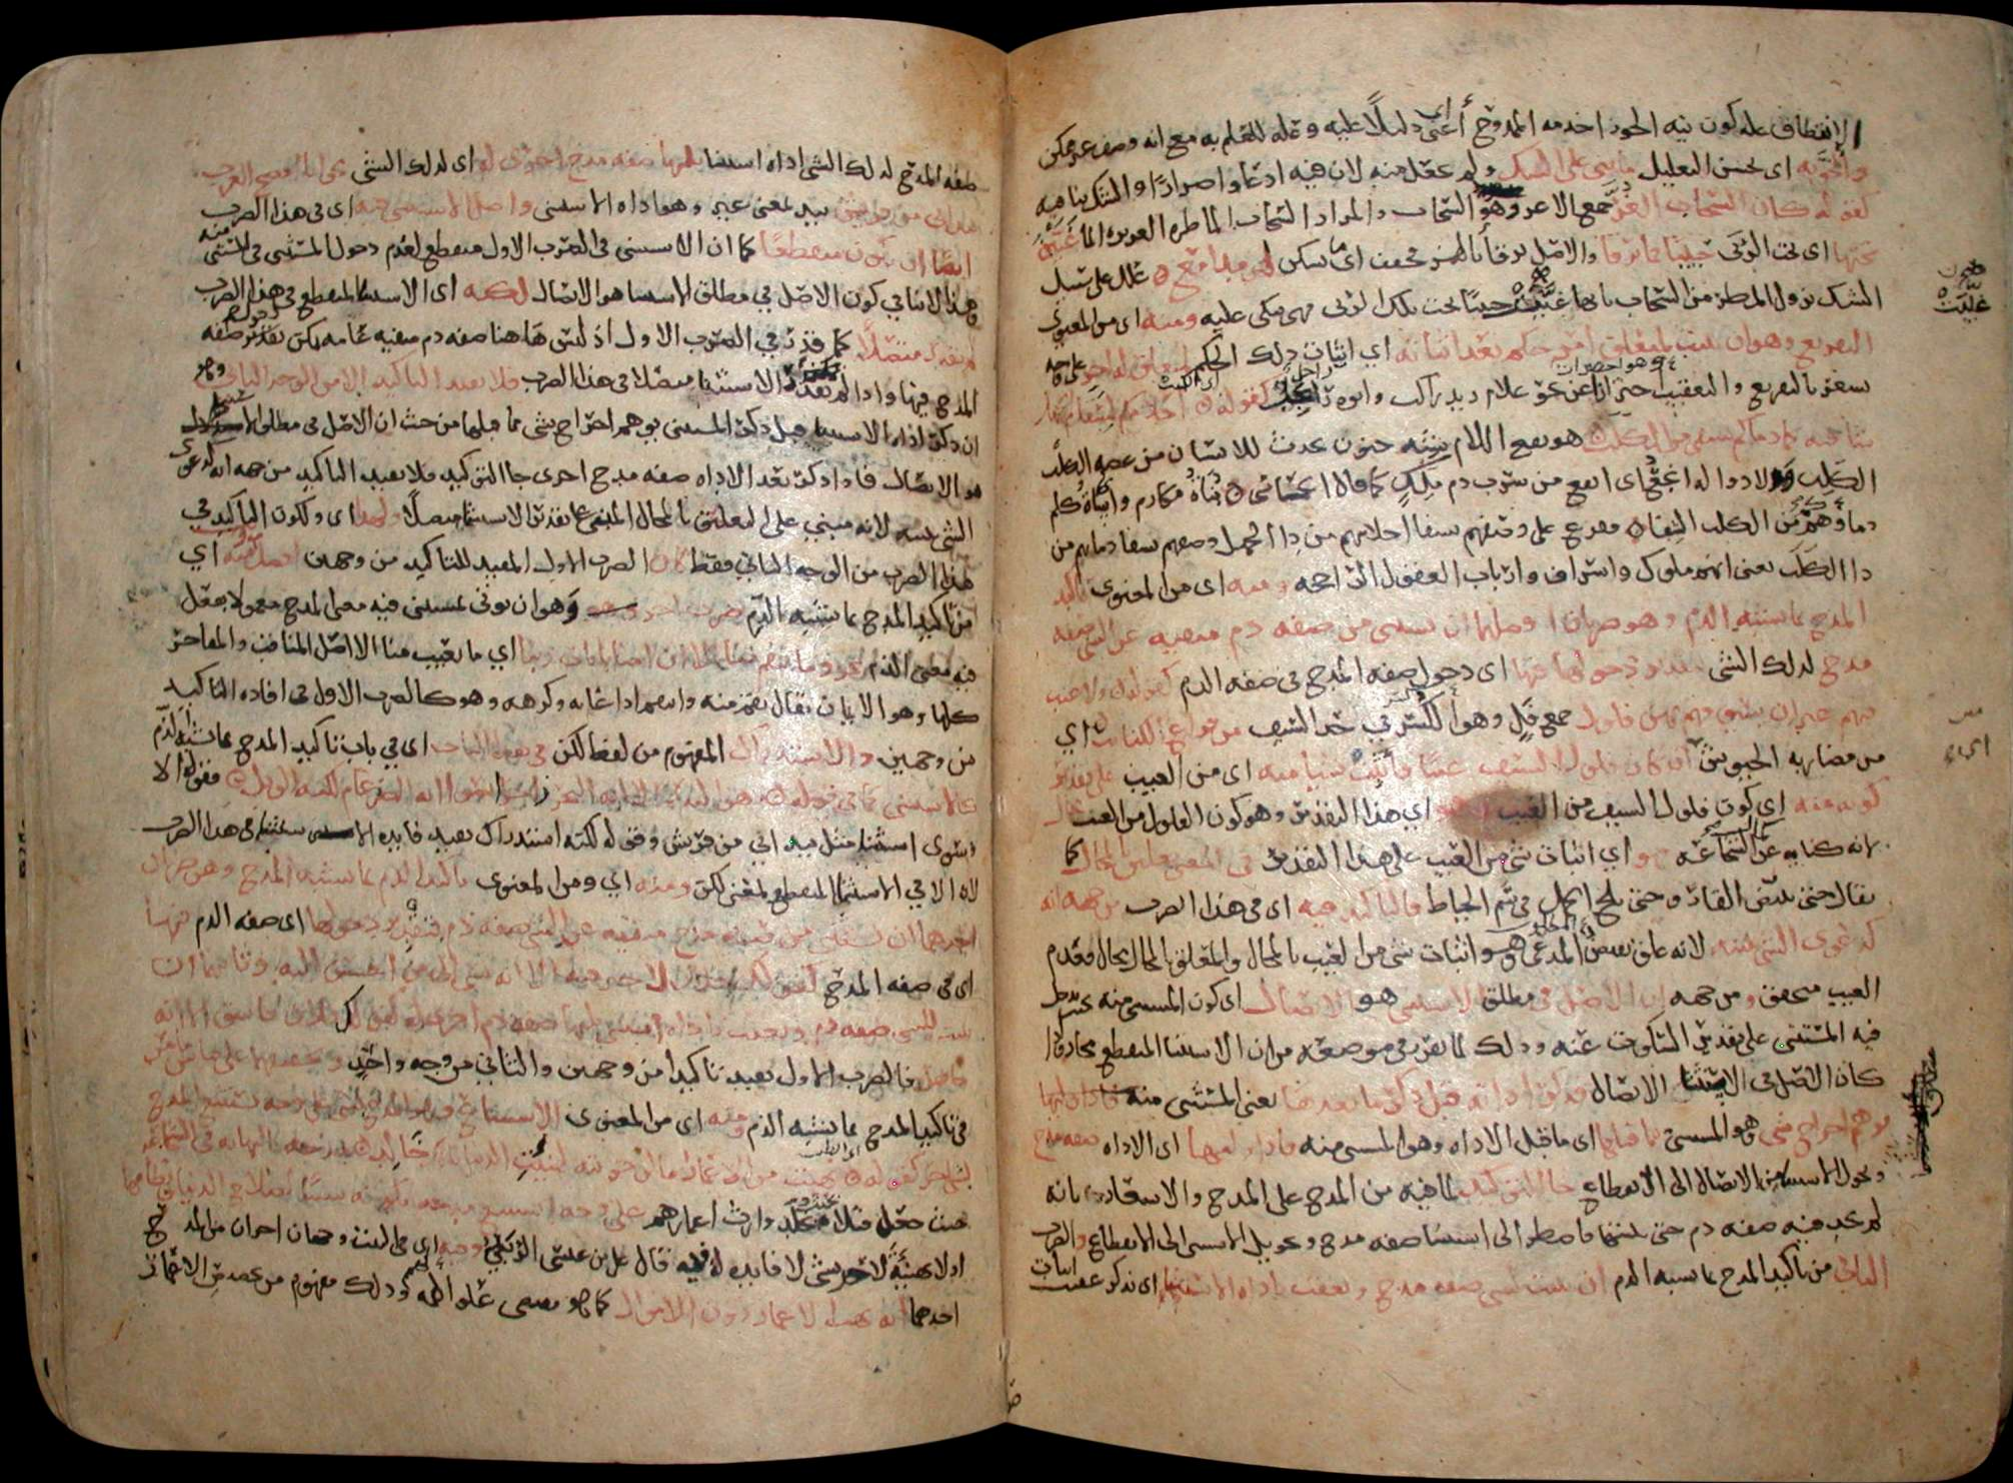 الانتطاق علة كون نية الجوزا خدمة الممدوح أعني دليلا عليه وعلة للعلم به مع انه وصف غير ممكن
والحق به اى بحسن التعليل ما بنى على الشك ولم يجعل منه لان فيه ادعا واصرارا والشك ينافيه
كقوله كان السحاب الغر جمع الاغر وهو السحاب والمراد السحاب الماطرة الغزيرة الما غيبن
تحتها اى تحت الربى حبيبا فما ترقا والاصل ترقأ بالهمز فخفف اى ما تسكن لهن مدامع علل على سبيل
الشك نزول المطر من السحاب بانها غيبت حبيبا تحت تلك الربى فهي تبكي عليه ومنه اى من المعنوي
التفريع وهو ان يثبت لمتعلق امر حكم بعد اثباته اي اثبات ذلك الحكم لمتعلق له اخر على وجه
يشعر بالتفريع والتعقيب احترازا عن نحو غلام زيد راكب وابوه راجل كقوله احلامكم لسقام الجهل
شافية كما دماؤكم تشفي من الكلب هو بفتح اللام شبه جنون يحدث للانسان من عض الكلب
الكلب ولا دوا له انجع اى انفع من شرب دم ملك كما قال الحماسي بناة مكارم واساة كلم
دماؤهم من الكلب الشفا ففرع على وصفهم بشفا احلامهم من دا الجهل وصفهم بشفا دمائهم من
دا الكلب يعنى انهم ملوك واشراف وارباب العقول الراجحة ومنه اى من المعنوى تاكيد
المدح بما يشبه الذم وهو ضربان افضلهما ان يستثنى من صفة ذم منفية عن الشى صفة
مدح لذلك الشى بتقدير دخولها فيها اى دخول صفة المدح في صفة الذم كقوله ولا عيب
فيهم غير ان سيوفهم بهن فلول جمع فل وهو الكسر في حد السيف من قراع الكتائب اي
من مضاربة الجيوش اى ان كان فلول السيف عيبا فاثبت شيا منه اى من العيب على تقدير
كونه منه اي كون فلول السيف من العيب وهو اي هذا التقدير وهو كون الفلول من العيب محال
لانه كناية عن كمال الشجاعة فهو اي اثبات شى من العيب على هذا التقدير في المعنى تعليق بالمحال كما
يقال حتى يبيض القار وحتى يلج الجمل في سم الخياط فالتاكيد فيه اى في هذا الضرب من جهة انه
كدعوى الشى ببينة لانه علق نقيض المدعى وهو اثبات شى من العيب بالمحال والمعلق بالمحال محال فعدم
العيب متحقق ومن جهة ان الاصل في مطلق الاستثنى هو الاتصال اى كون المستثنى منه بحيث يدخل
فيه المستثنى على تقدير السكوت عنه وذلك لما تقرر في موضعه من ان الاستثنا المنقطع مجاز واذا
كان الاصل في الاستثنا الاتصال فذكر اداته قبل ذكر ما بعدها يعنى المستثنى منه
يوهم اخراج شى وهو المستثنى مما قبلها اى ما قبل الاداة وهو المستثنى منه فاذا وليها اى الاداة صفة مدح
وتحول الاستثنا من الاتصال الى الانقطاع جا التاكيد لما فيه من المدح على المدح والاشعار بانه
لم يجد فيه صفة ذم حتى يستثنيها فاضطر الى استثنا صفة مدح وتحويل الاستثنى الى الانقطاع والضرب
الثاني من تاكيد المدح بما يشبه الذم ان يثبت لشى صفة مدح ويعقب باداة الاستثنا اى يذكر عقيب اثبات
صفة المدح لذلك الشى اداة استثنا يليها صفة مدح اخرى له اى لذلك الشى نحو انا افصح العرب
بيد اني من قريش بيد بمعنى غير وهو اداة الاستثنى واصل الاستثنى فيه اى في هذا الضرب
ايضا ان يكون منقطعا كما ان الاستثنى في الضرب الاول منقطع لعدم دخول المستثنى في المستثنى منه
وهذا لا ينافي كون الاصل في مطلق الاستثنا هو الاتصال لكنه اى الاستثنا المنقطع في هذا الضرب
لم يقدر متصلا كما قدر في الضرب الاول اذ ليس هاهنا صفة ذم منفية عامة يمكن تقدير دخول صفة
المدح فيها واذا لم يمكن تقدير الاستثنا متصلا في هذا الضرب فلا يفيد التاكيد الا من الوجه الثاني وهو
ان ذكر اداة الاستثنا قبل ذكر المستثنى يوهم اخراج شى مما قبلها من حيث ان الاصل في مطلق الاستثنا
هو الاتصال فاذا ذكر بعد الاداة صفة مدح اخرى جا التوكيد فلا يفيد التاكيد من جهة انه كدعوى
الشى ببينة لانه مبني على التعليق بالمحال المبني على تقدير الاستثنا متصلا ولهذا اى ولكون التاكيد في
هذا الضرب من الوجه الثاني فقط كان الضرب الاول المفيد للتاكيد من وجهين افضل ومنه اي
من تاكيد المدح بما يشبه الذم ضرب اخر وهو ان يوتى بمستثنى فيه معنى المدح معمولا بفعل
فيه معنى الذم نحو وما تنقم منا الا ان امنا بايات ربنا اي ما تعيب منا الا اصل المناقب والمفاخر
كلها وهو الايمان يقال نقم منه وانتقم اذا عابه وكرهه وهو كالضرب الاول في افادة التاكيد
من وجهين والاستدراك المفهوم من لفظ لكن في هذا الباب اى في باب تاكيد المدح بما يشبه الذم
كالاستثنى كما في قوله هو البدر الا انه البحر زاخرا سوى انه الضرغام لكنه الوبل فقوله الا
وسوى استثنا مثل بيد اني من قريش وقوله لكنه استدراك يفيد فايدة الاستثنا في هذا الضرب
لان الا في الاستثنا المنقطع بمعنى لكن ومنه اي ومن المعنوى تاكيد الذم بما يشبه المدح وهو ضربان
احدهما ان يستثنى من صفة مدح منفية عن الشى صفة ذم بتقدير دخولها اى صفة الذم فيها
اى في صفة المدح كقولك فلان لا خير فيه الا انه يسي الى من احسن اليه وثانيهما ان
يثبت للشى صفة ذم ويعقب باداة استثنى يليها صفة ذم اخرى له كقولك فلان فاسق الا انه
جاهل فالضرب الاول يفيد تاكيدا من وجهين والثاني من وجه واحد وتحقيقهما على قياس ما مر
في تاكيد المدح بما يشبه الذم ومنه اى من المعنوى الاستتباع وهو المدح بشى على وجه يستتبع المدح
بشى اخر كقوله نهبت من الاعمار ما لو حويته لهنيت الدنيا بانك خالد مدحه بالنهاية في الشجاعة
حيث جعل قتلاه بحيث يخلد وارث اعمارهم على وجه استتبع مدحه بكونه سببا لصلاح الدنيا ونظامها
اذ لا تهنئة لاحد بشى لا فايدة له فيه قال علي بن عيسى الربعي وفيه اي في البيت وجهان اخران من المدح
احدهما انه نهب الاعمار دون الاموال كما هو مقتضى علو الهمة وذلك مفهوم من تخصيص الاعمار